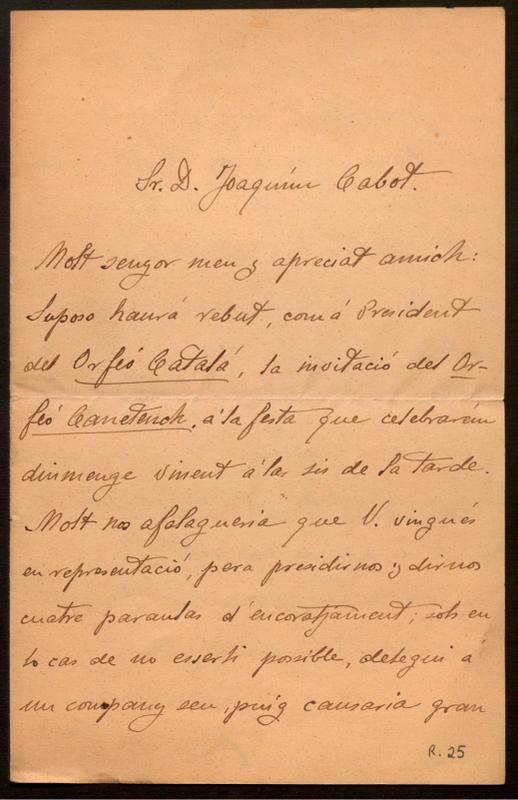 Sr. D. Joaquím Cabot.
Molt senyor meu y apreciat amich:
Suposo haurá rebut, com á President
del Orfeó Catalá, la invitació del Or-
feó Canetench, á la festa que celebrarém
diumenge vinent á las sis de la tarde.
Molt nos afalagueria que V. vingués
en representació, pera presidirnos y dirnos
cuatre paraulas d'encoratjament; sols en
lo cas de no esserli possible, delegui á
un company seu, puig causaria gran
R. 25